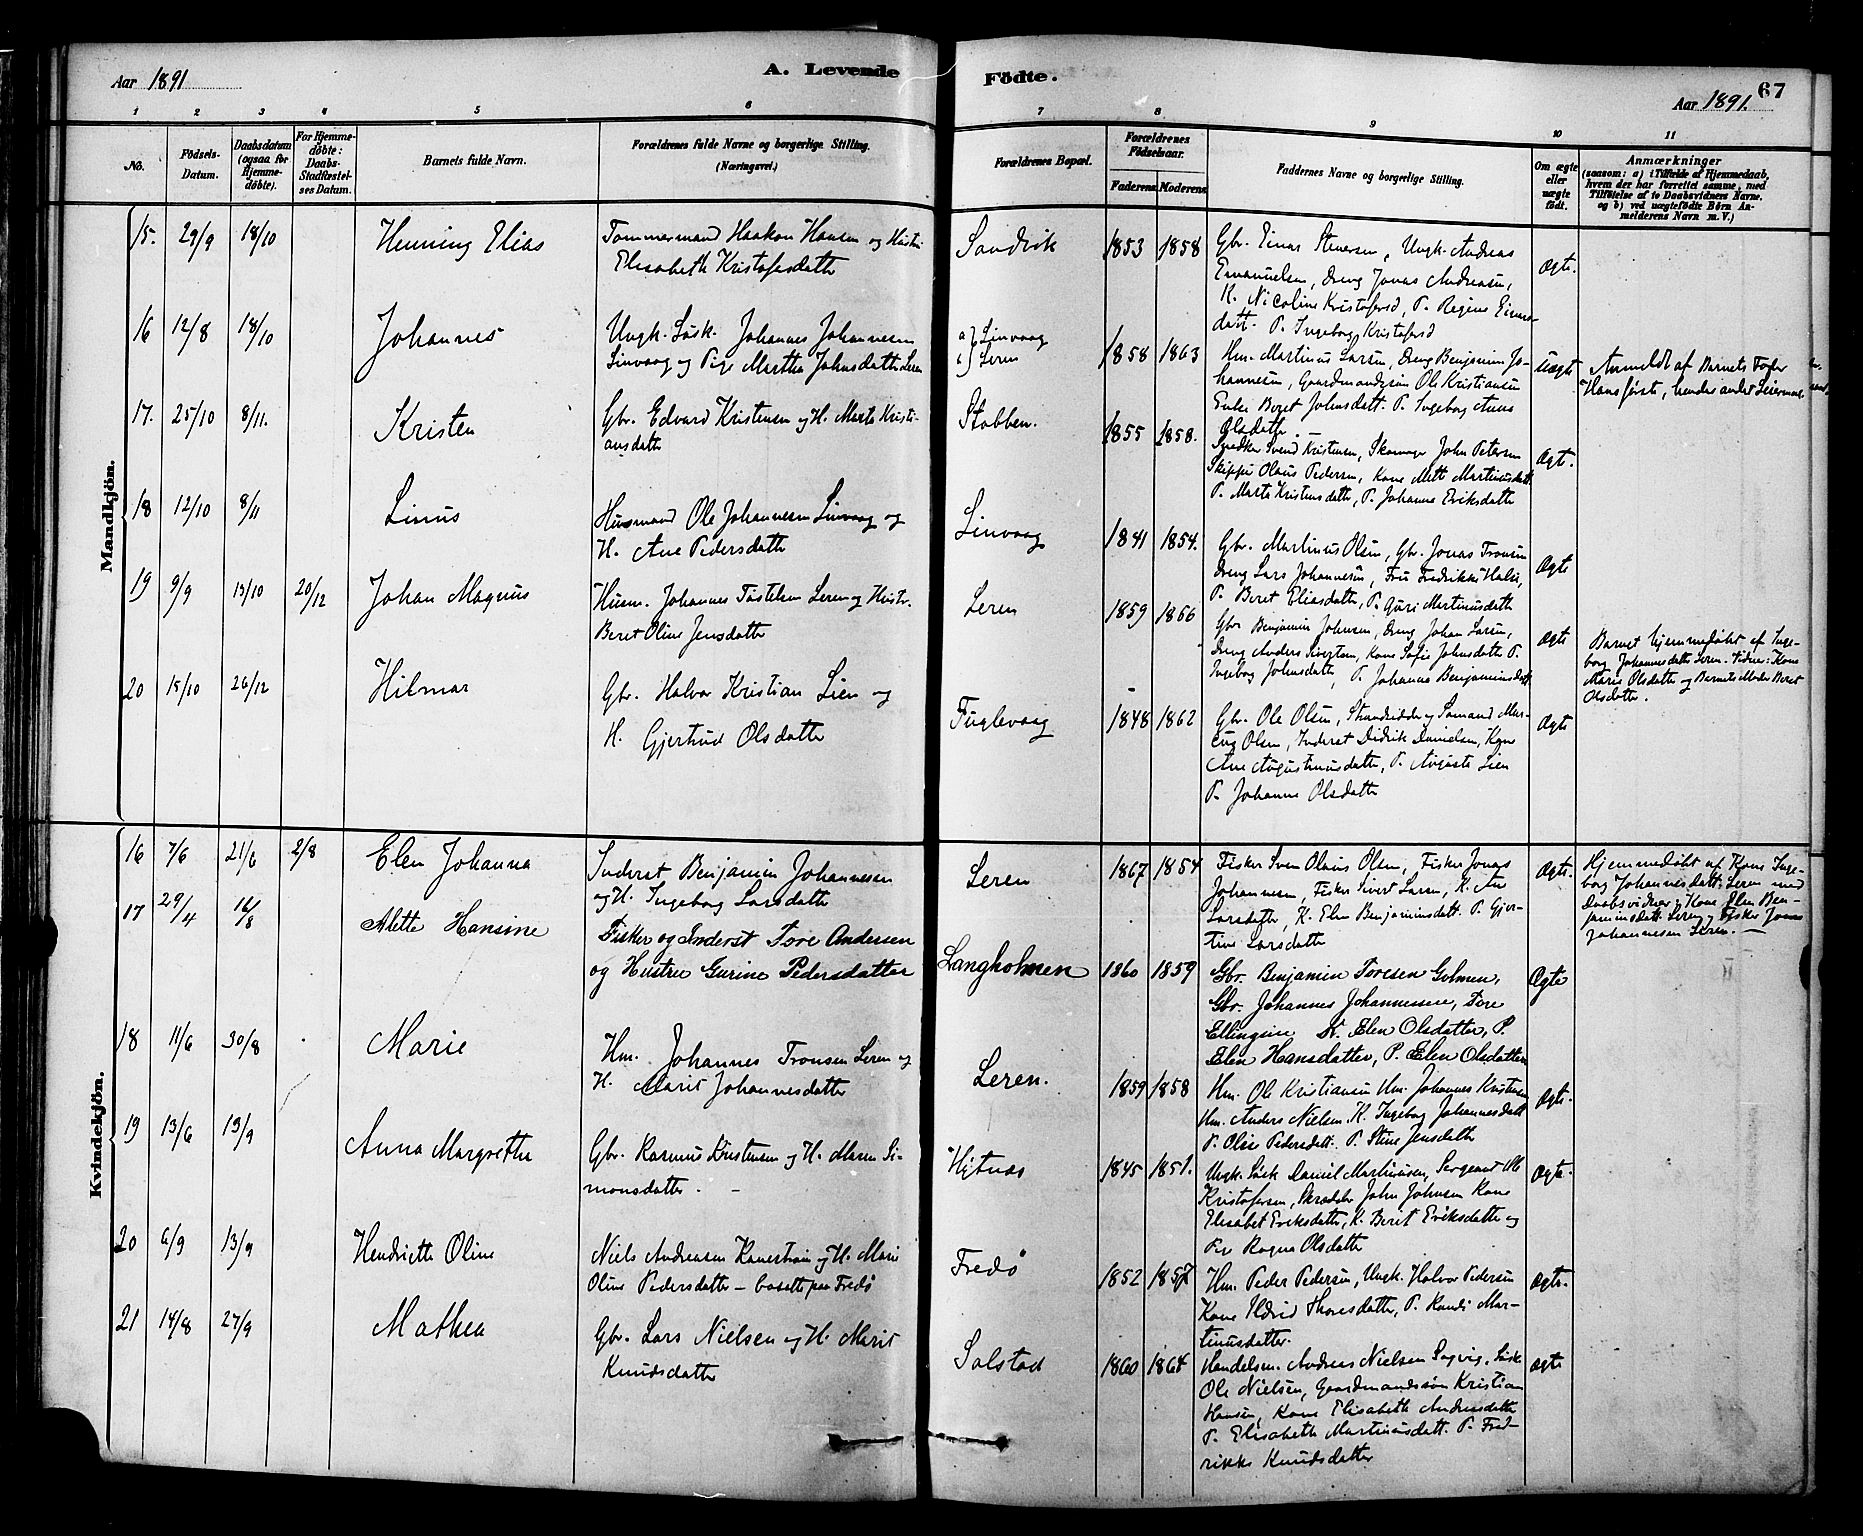 Aar 1891
A. Levende
Födte.
67
Aar 1891.
1 2 3 4 5 6 7 8 9 10 11
No.
Födsels-
Datum.
Daabsdatum
(ogsaa for
Hjemme-
döbte).
For Hjemme-
döbte:
Daabs-
Stadfæstel-
ses Datum.
Barnets fulde Navn.
Forældrenes fulde Navne og borgerlige Stilling.
(Næringsvei.)
Forældrenes Bopæl.
Forældrenes
Födselsaar.
Faderens. Moderens.
Faddernes Navne og borgerlige Stilling.
Om ægte
eller
uægte
födt.
Anmærkninger
(saasom: a) i Tilfælde af Hjemmedaab,
hvem der har forrettet samme, med
Tilföielse af to Daabsvidners Navne.
og b) ved uægtefödte Börn An-
melderens Navn m. V.)
Mandkjön.
15. 29/9 18/10 Henning Elias
Tømmermand Haakon Hansen og Hustru
Elisabeth Kristofersdatter
Sandvik 1853 1858
Gbr. Einar Stenersen, Ungk. Andreas
Emanuelsen, Dreng Jonas Andreasen,
K. Nicoline Kristofersd, P. Regine Einars-
datt. P. Ingeborg Kristofersd
Ægte.
16 12/8 18/10 Johannes
Ungk. Løsk. Johannes Johannesen
Linvaag og Pige Martha Johnsdatter Leren
a) Linvaag
b) Leren
1858 1863
Hm. Martinus Larsen, Dreng Benjamin Jo-
hannesen, Gaardmandssøn Ole Kristiansen
Enke Beret Johnsdatt. P. Ingeborg Anna
Olsdatter.
Uægte
Anmeldt af Barnets Fader
Hans første, hendes andet Leiermaal.
17. 25/10 8/11. Kristen
Gbr. Edvard Kristensen og H. Marta Kristi-
ansdatter
Stobben. 1855 1858.
Snedker Svend Kristensen, Skomager John Petersen
Skipper Olaus Pedersen, Kone Mett Martinusdatt
P. Marta Kristensdatter, P. Johanna Eriksdatter
Ægt.
18 12/10 8/11 Linus
Husmand Ole Johannesen Linvaag og
H. Ane Pedersdatter
Linvaag 1841 1854.
Gbr. Martinus Olsen, Gbr. Jonas Tronsen
Dreng Lars Johannesen, Fru Fredrikke Halse,
P. Beret Eliasdatter, P. Guri Martinusdatter
Ægte
19 9/9 13/10 20/12 Johan Magnus
Husm. Johannes Tostelsen Leren og Hustr.
Beret Oline Jensdatter
Leren 1859 1866
Gbr Benjamin Johnsen, Dreng Johan Larsen,
Dreng Anders Sivertsen, Kone Sofie Johnsdatter P.
Ingeborg Johnsdatter, P. Johanna Benjaminsdatt
Ægte
Barnet hjemmedøbt af Inge-
borg Johannesdatter Leren. Vidner: Kone
Marie Olsdatter og Barnets Moder Beret
Olsdatter.
20 15/10 26/12 Hilmar
Gbr. Halvor Kristian Lien og
H. Gjertrud Olsdatter
Fuglevaag 1848 1862
Gbr. Ole Olsen, Strandsidder og Sømand Mar-
cus Olsen, Inderst Didrik Danielsen, Kone
Ane Augustinusdatter, P. Augusta Lien
P. Johanna Olsdatter
Ægte
Kvindekjön.
16 7/6 21/6 2/8 Elen Johanna
Inderst Benjamin Johannesen
og H. Ingeborg Larsdatter
Leren 1867 1854
Fisker Sven Olaus Olsen, Fisker Jonas
Johannesen, Fisker Sivert Larsen, K. Ane
Larsdatter, K. Elen Benjaminsdatt. P. Gjer-
tine Larsdatter
Ægte.
Hjemmedøbt af Kone Inge-
borg Johannesdatt. Leren med
Daabsvidner: Kone Elen Ben-
jaminsdatt Leren og Fisker Jonas
Johannesen Leren.
17 29/4 16/8 Alette Hansine
Fisker og Inderst Tore Andersen
og Hustru Gurine Pedersdatter
Langholmen 1860 1859
Gbr. Benjamin Toresen Golmen,
Gbr. Johannes Johannessen, Tore
Ellingsen K. Elen Olsdatter, P.
Elen Hansdatter, P. Elen Olsdatter
Ægte
18 11/6 30/8 Marie
Hm. Johannes Tronsen Leren og
H. Marit Johannesdatter
Leren. 1859 1858
Hm. Ole Kristiansen Hm. Johannes Kristensen
Hm. Anders Nielsen, K. Ingeborg Johannesdatt
P. Oline Pedersdatt. P. Stine Jensdatter
Ægte.
19 13/6 13/9 Anna Margrethe
Gbr. Rasmus Kristensen og H. Maren Si-
monsdatter.
Hjtnæs 1845 1851.
Ungk. Løsk Daniel Martinusen, Sergeant Ole
Kristofersen, Skrædder John Johnsen Kone
Elisabet Eriksdatter, K. Beret Eriksdatter og
Pige Ragna Olsdatter
Ægte.
20 6/9 13/9 Henriette Oline
Niels Andreasen Kanestrøm og H. Marie
Oline Pedersdatter – bosatte paa Fredø
Fredø 1852 1857
Hm. Peder Pedersen, Ungk. Halvor Pedersen
Kone Ildrid Thoresdatter, P. Randi Mar-
tinusdatter.
Ægte.
21 14/8 27/9 Mathea
Gbr. Lars Nielsen og H. Marit
Knudsdatter
Solstad 1860 1864
Handelsm. Andreas Nielsen Sagvig, Løsk
Ole Nielsen, Gaardmandssøn Kristian
Hansen, Kone Elisabeth Andreasdatter
P. Elisabeth Martinusdatt. P. Fred-
rikke Knudsdatter
Ægte